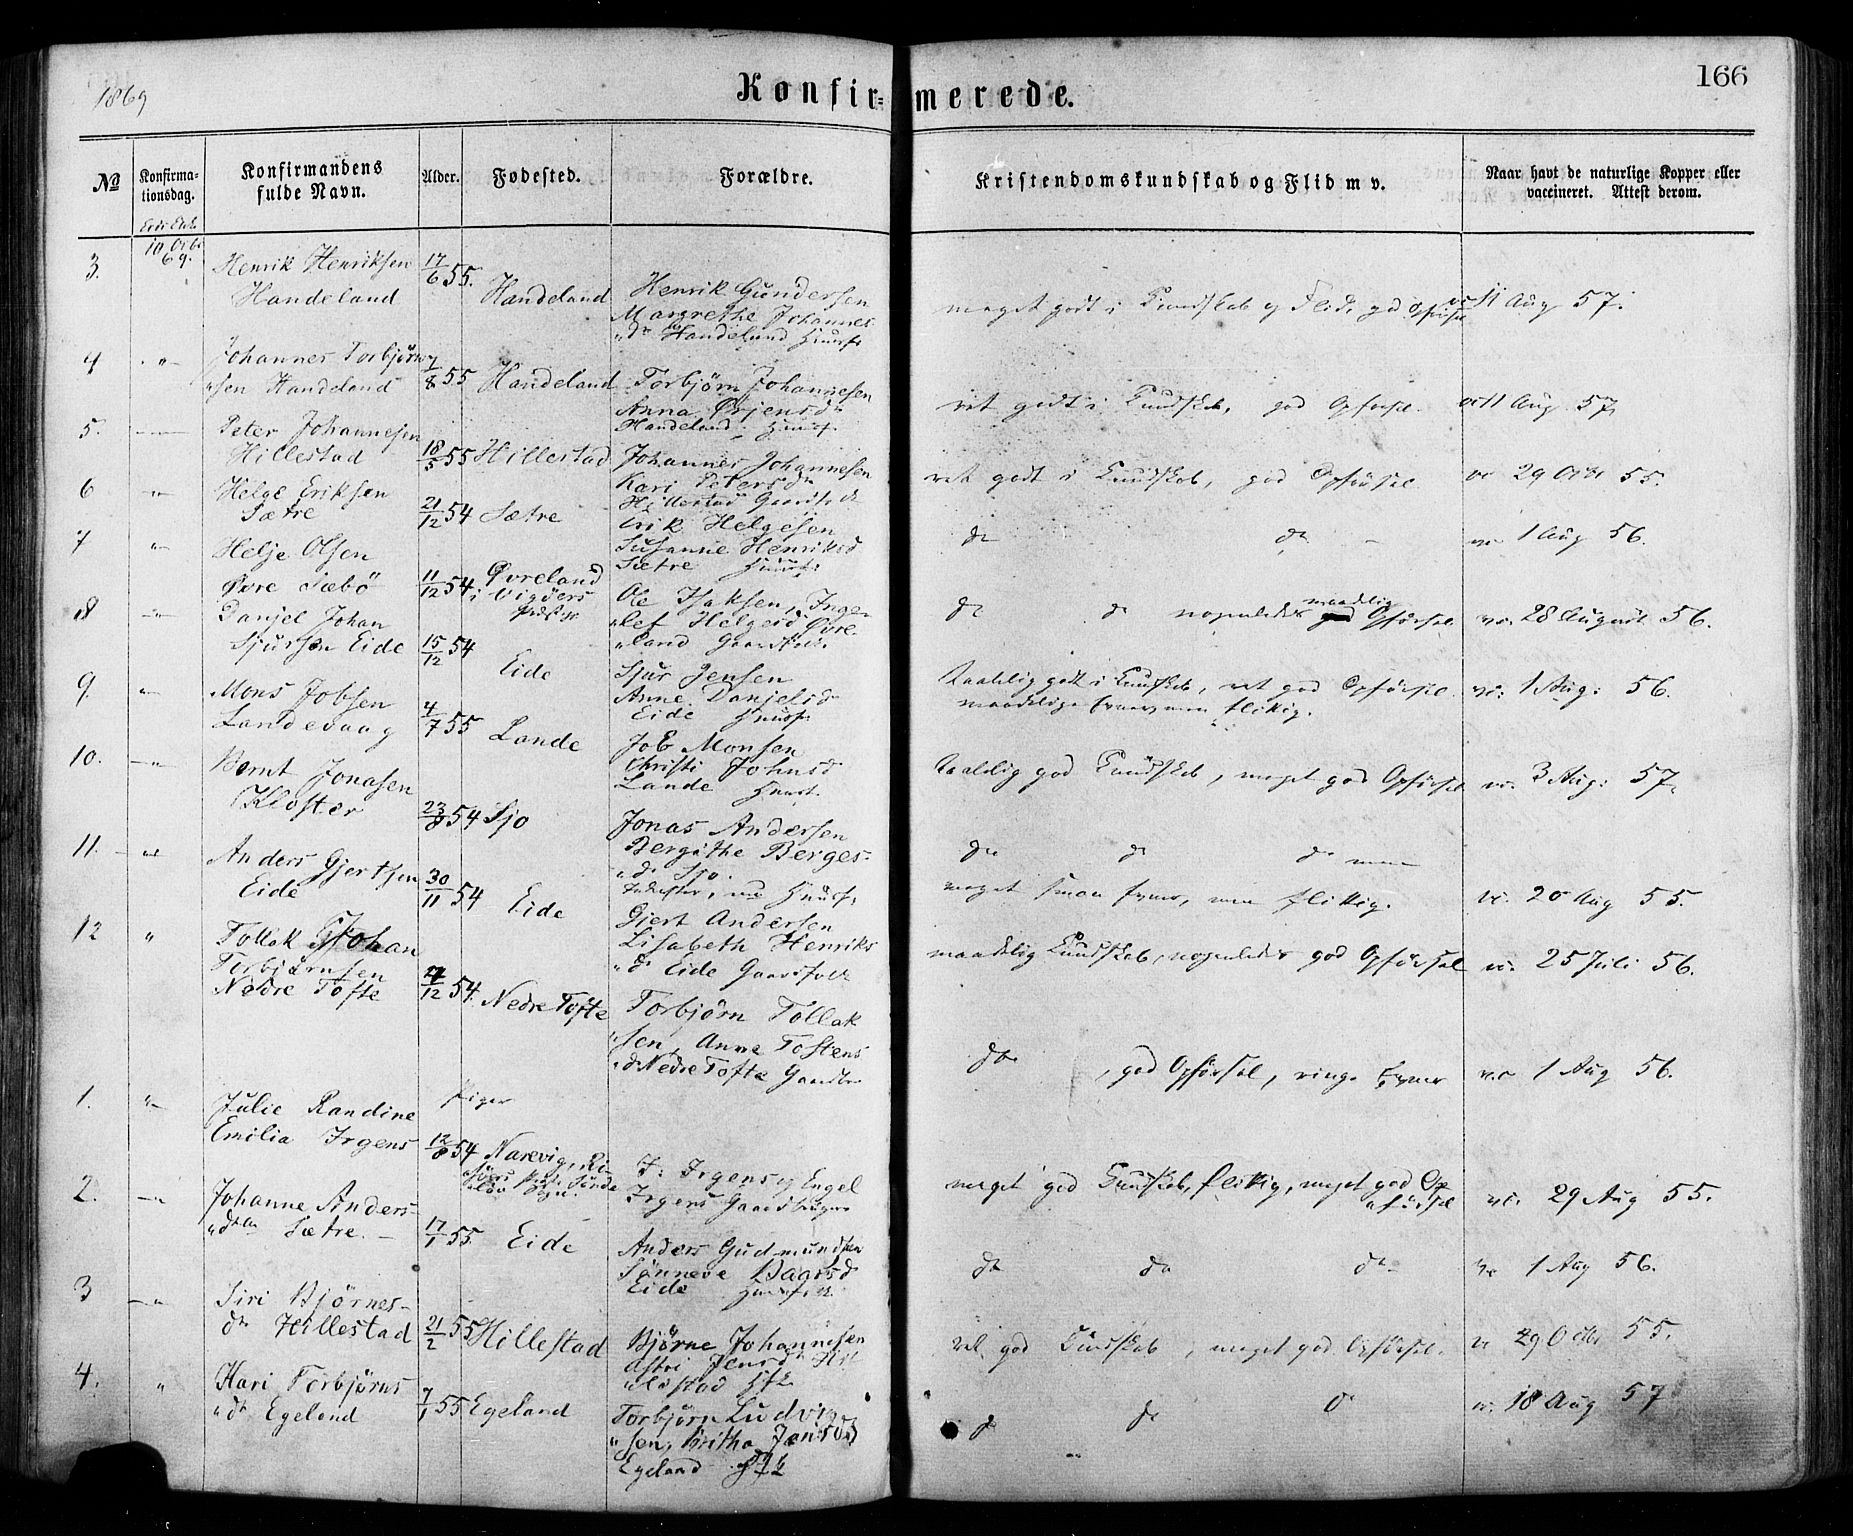 1869
Konfir=
merede.
166
No
Konfirma-
tionsdag.
Konfirmandens
fulde Navn.
Alder.
Fødested.
Forældre.
Kristendomskundskab og Flid m v.
Naar havt de naturlige Kopper eller
vaccineret. Attest derom.
3.
10 Octbr
69.
Henrik Henriksen
Handeland
17/6 55.
Handeland
Henrik Gundersen
Margrethe Johannes
"dr Handeland Huusf:
meget godt i Kundskab og Flid, god Opførsel
vc 11 Aug 57.
4
"
Johannes Torbjörn
"sen Handeland
7/8 55
Handeland
Torbjörn Johannesen
Anna Ørjensdr
Handeland, Huusf.
ret godt i Kundskab, god Opførsel.
vc 11 Aug 57.
5.
Peter Johannesen
Hillestad
18/5 55
Hillestad
Johannes Johannesen
Kari Petersdr
Hillestad Gaardsf.
ret godt i Kundskab, god Opförsel
vc 29 Octbr 55.
6
"
Helge Eriksen
Sætre
21/12 54
Sætre
Erik Helgesen
Susanne Henriksd
Sætre Huusf:
do do -
vc 1 Aug 56.
7
"
Helje Olsen
Øvre Sæbö
11/12 54
Øvreland
i Vigöers
Præst.
Ole Isaksen, Inge
"lef Helgesd Øvre
"land Gaardfolk
do do nogenledes maadelig Opførsel
vc. 28 August 56.
8
"
Danjel Johan
Sjursen Eide
15/12 54
Eide
Sjur Jensen
Anne Danjelsd
Eide Huusf:
Taalelig godt i Kundskab, ret god Opførsel.
maadelige Evner men flittig.
vc: 1 Aug: 56.
9.
"
Mons Jobsen
Landevaag
4/7 55
Lande
Job Monsen
Christi Johnsd
Lande Huusf.
Taalelig god Kundskab, meget god Opførsel
vc. 3 Aug: 57.
10.
"
Bernt Jonasen
Kloster
23/8 54
Sjo
Jonas Andersen
Bergithe Berges-
"dr Sjo.
Huusf,
do do do men
meget smaa Evner, men flittig.
vc. 20 Aug 55.
11.
"
Anders Gjertsen
Eide
30/11 54
Eide
Gjert Andersen
Lisabeth Henriks
"dr Eide Gaardfolk
maadelig Kundskab, nogenledes god Opførsel
vc. 25 Juli 56.
12
"
Tollak Johan
Torbjörnsen
Nedre Tofte
/12 54.
Nedre Tofte
Torbjörn Tollak
"sen, Anne Tostens
"dr Nedre Tofte Gaardbr
do , god Opførsel, ringe Evner
vc 1 Aug 56.
Piger
1.
"
Julie Randine
Emilia Irgens
12/8 54
Narevig, Ri
J: Irgens og Engel
Irgens Gaardbruger
meget god Kundskab, flittig, meget god Op
"førsel
vc. 29 Aug 55.
2.
"
Johanne Anders-
"dtr Sætre.
17/1 55.
Eide
Anders Gudmundsen
Sönneve Baarsd
Eide Huusf.
do do do
vc 1 Aug 56.
3
"
Siri Björnes-
dr Hillestad
21/2 55
Hillestad
Björne Johannesen
Astri Jensdr Hil
"lestad Hfk
vel god Kundskab, meget god Opförsel.
vc 29 Octbr 55.
4.
"
Kari Torbjörns
"dr Egeland
7/1 55
Egeland
Torbjörn Ludvig
"sen, Britha Jensd
Egeland Hfk
do do do
vc. 18 Aug 57